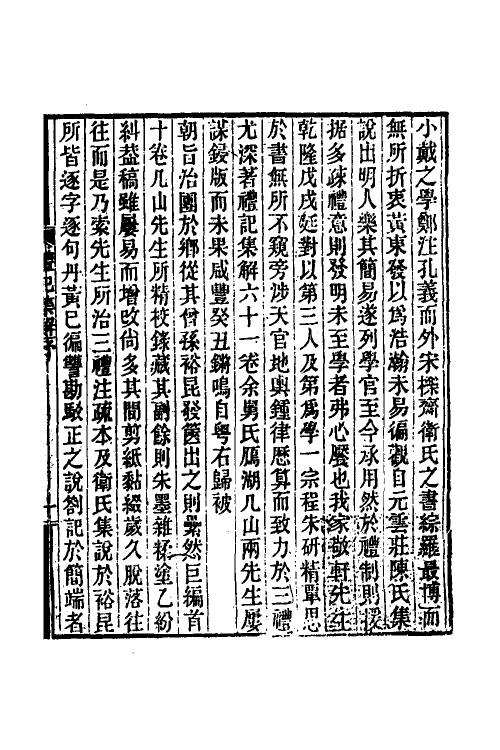 小戴之學鄭注孔義而外宋櫟齋衛氏之書綜羅最博而
無所折衷黃東發以爲浩瀚未易徧觀自元雲莊陳氏集
說出明人樂其簡易遂列學官至今承用然於禮制則援
据多疎禮意則發明未至學者弗心饜也我家敬軒先生
乾隆戊戌廷對以第三人及第爲學一宗程朱研精單思
於書無所不窺旁涉天官地輿鍾律厤算而致力於三禮
尤深著禮記集解六十一卷余舅氏鴈湖几山兩先生屢
謀鋟版而未果咸豐癸丑鏘鳴自粤右歸被
朝旨治團於鄉從其曾孫裕昆發篋出之則纍然巨編首
十卷几山先生所精校錄藏其副餘則朱墨雜糅塗乙紛
糾葢稿雖屢易而增改尙多其間剪紙黏綴歲久脫落往
往而是乃索先生所治三禮注疏本及衛氏集說於裕昆
所皆逐字逐句丹黃已徧讐勘駁正之說劄記於簡端者
禮記集解序